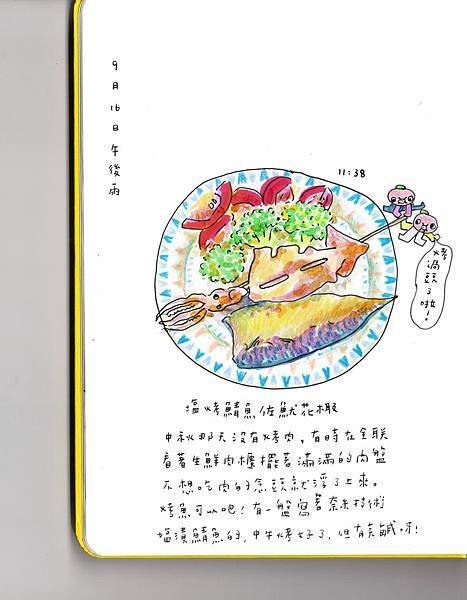 9月16日午後雨
11:38
烤過頭了啦!
塩烤鯖魚佐魷花椰
中秋那天沒有烤肉,有時在全联
看著生鮮肉櫃擺著滿滿的肉盤
不想吃肉的念頭就浮了上來。
烤魚可以吧!有一盤寫著奈米技術
塩漬鯖魚的,中午烤好了,但有夠鹹呀!